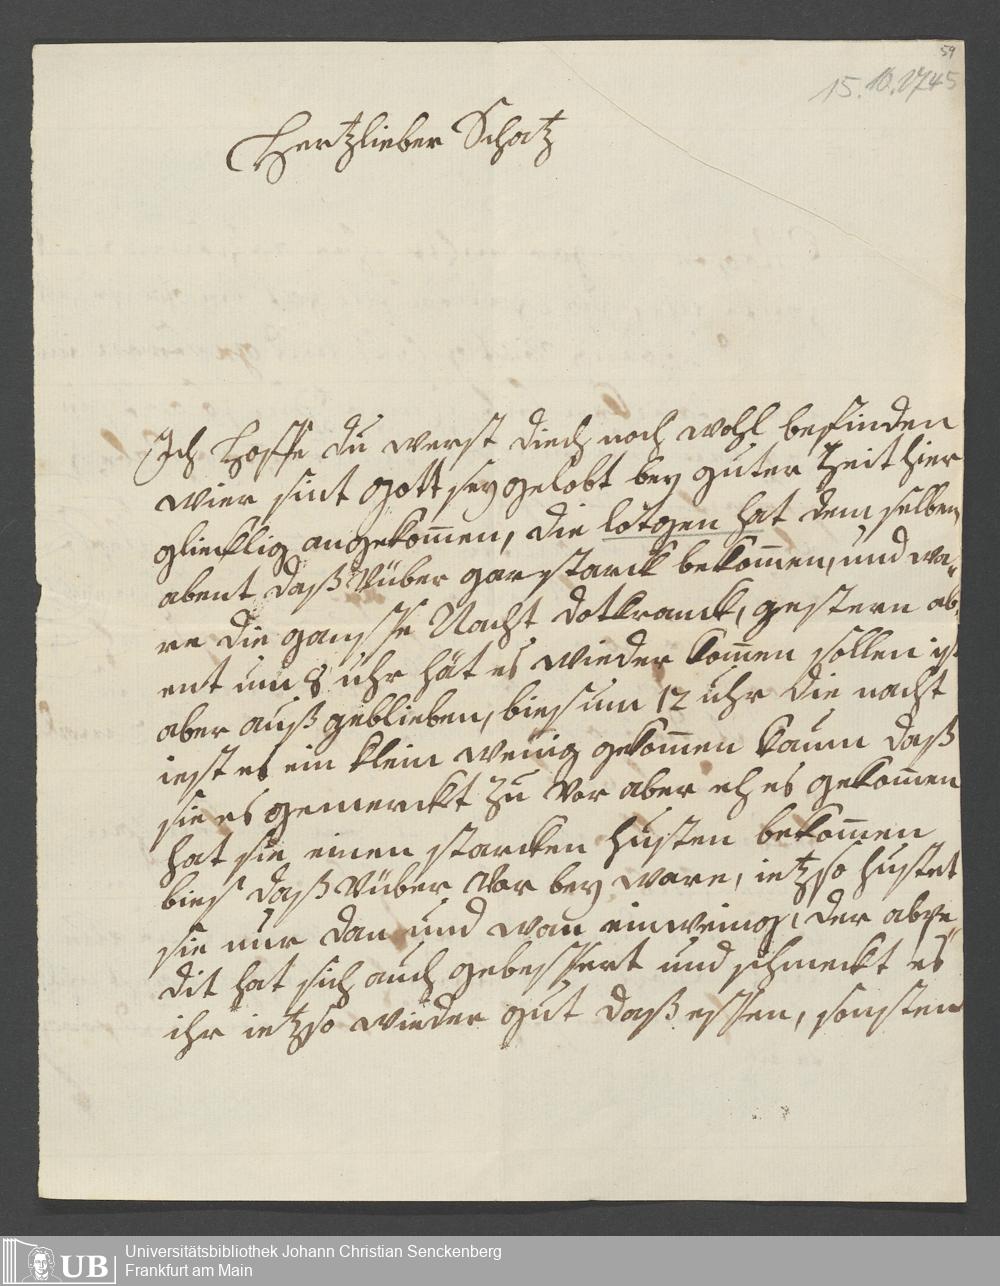 59
15. 10. 1745
Hertzlieber Schatz
Ich hoffe du werst diech noch wohl befinden
wier sint gott sey gelobt bey guter Zeit hier
glicklig angekom̅en, die lotgen hat dem selben
abent daß Vüber gar starck bekom̅en, und wa„
re die gansse Nacht dotkranck, gestern ab„
ent um 8 uhr hät es wieder kom̅en sollen ist
aber auß geblieben, bies um 12 uhr die nacht
iest es ein klein wenig gekom̅en kaum daß
sie es gemerckt zu vor aber eh es gekom̅en
hat sie einen starcken husten bekom̅en
bies daß Vüber vor bey ware, ietzso hustet
sie nur dan und wan ein wenig, der abpe„
dit hat sich auch gebessert und schmeckt es
ihr ietzso wieder gut daß essen, sonsten
UB
Universitätsbibliothek Johann Christian Senckenberg
Frankfurt am Main